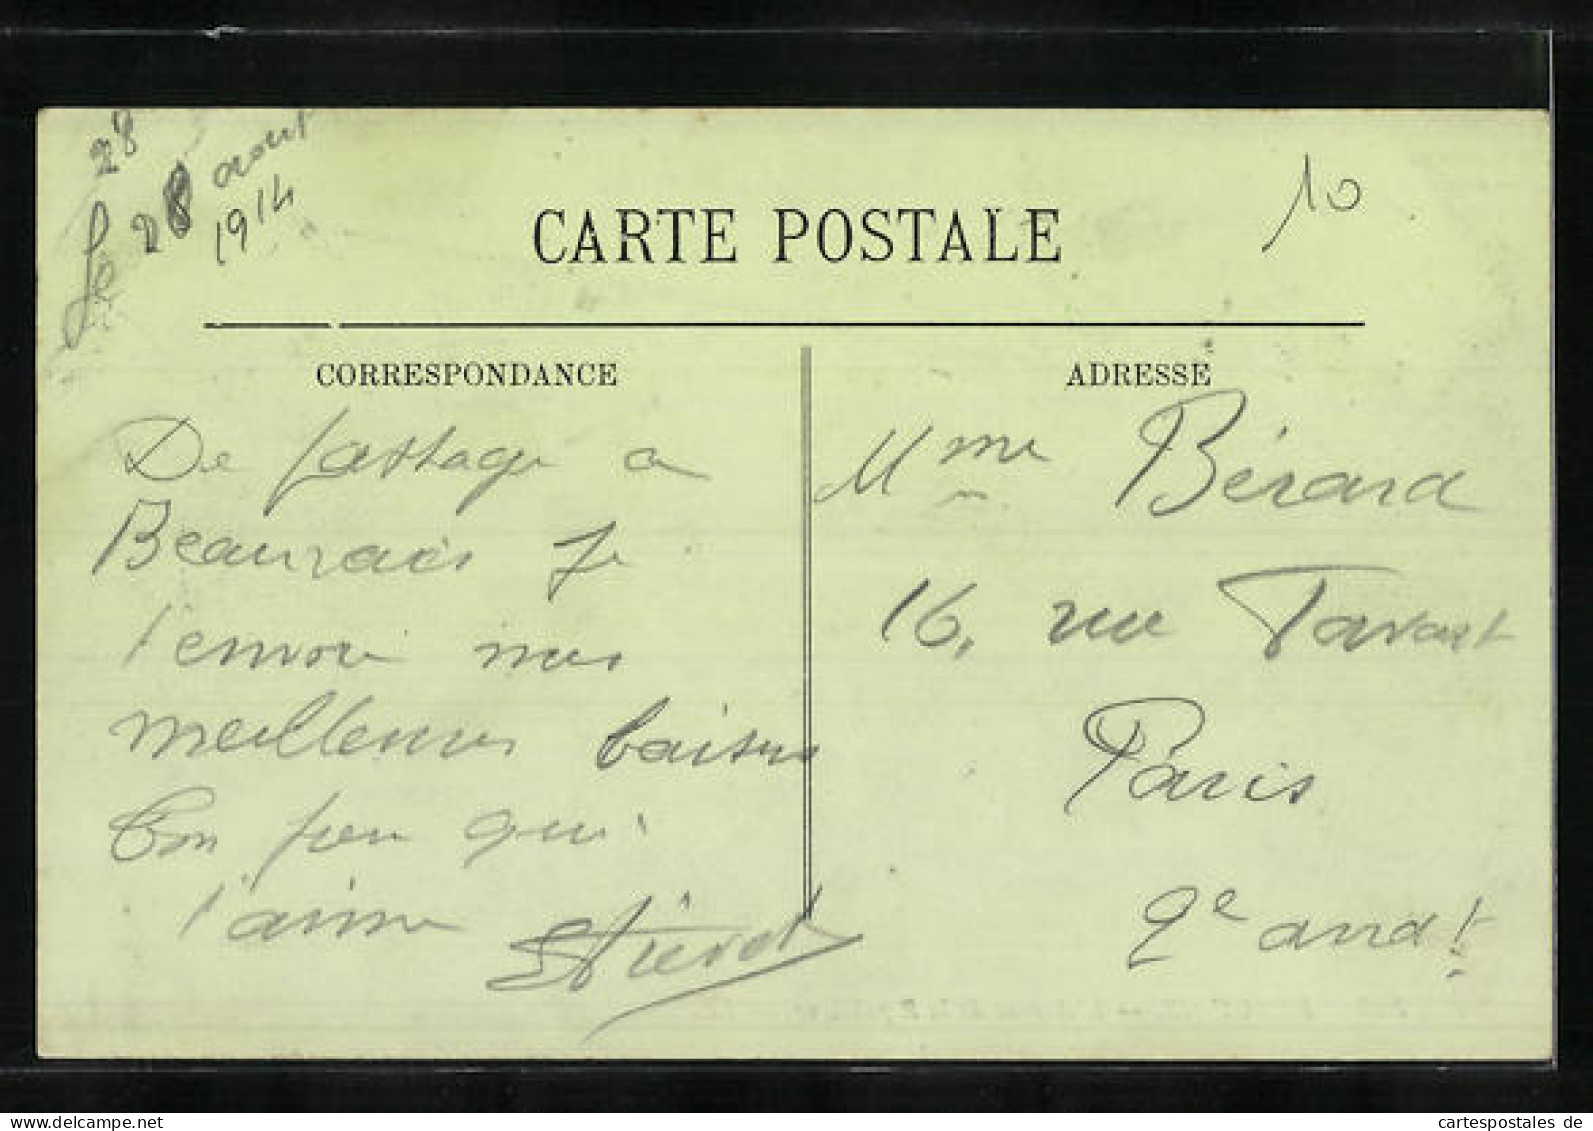 28
Le 28 août
1914
10
CARTE POSTALE
CORRESPONDANCE
De passage a
Beauvais Je
t'envoie mes
meilleurs baisers
Ton peu qui
t'aime
ADRESSE
Mme Bérard
16, rue Favart
Paris
2e arrdt
www.delcampe.net
cartespostales de